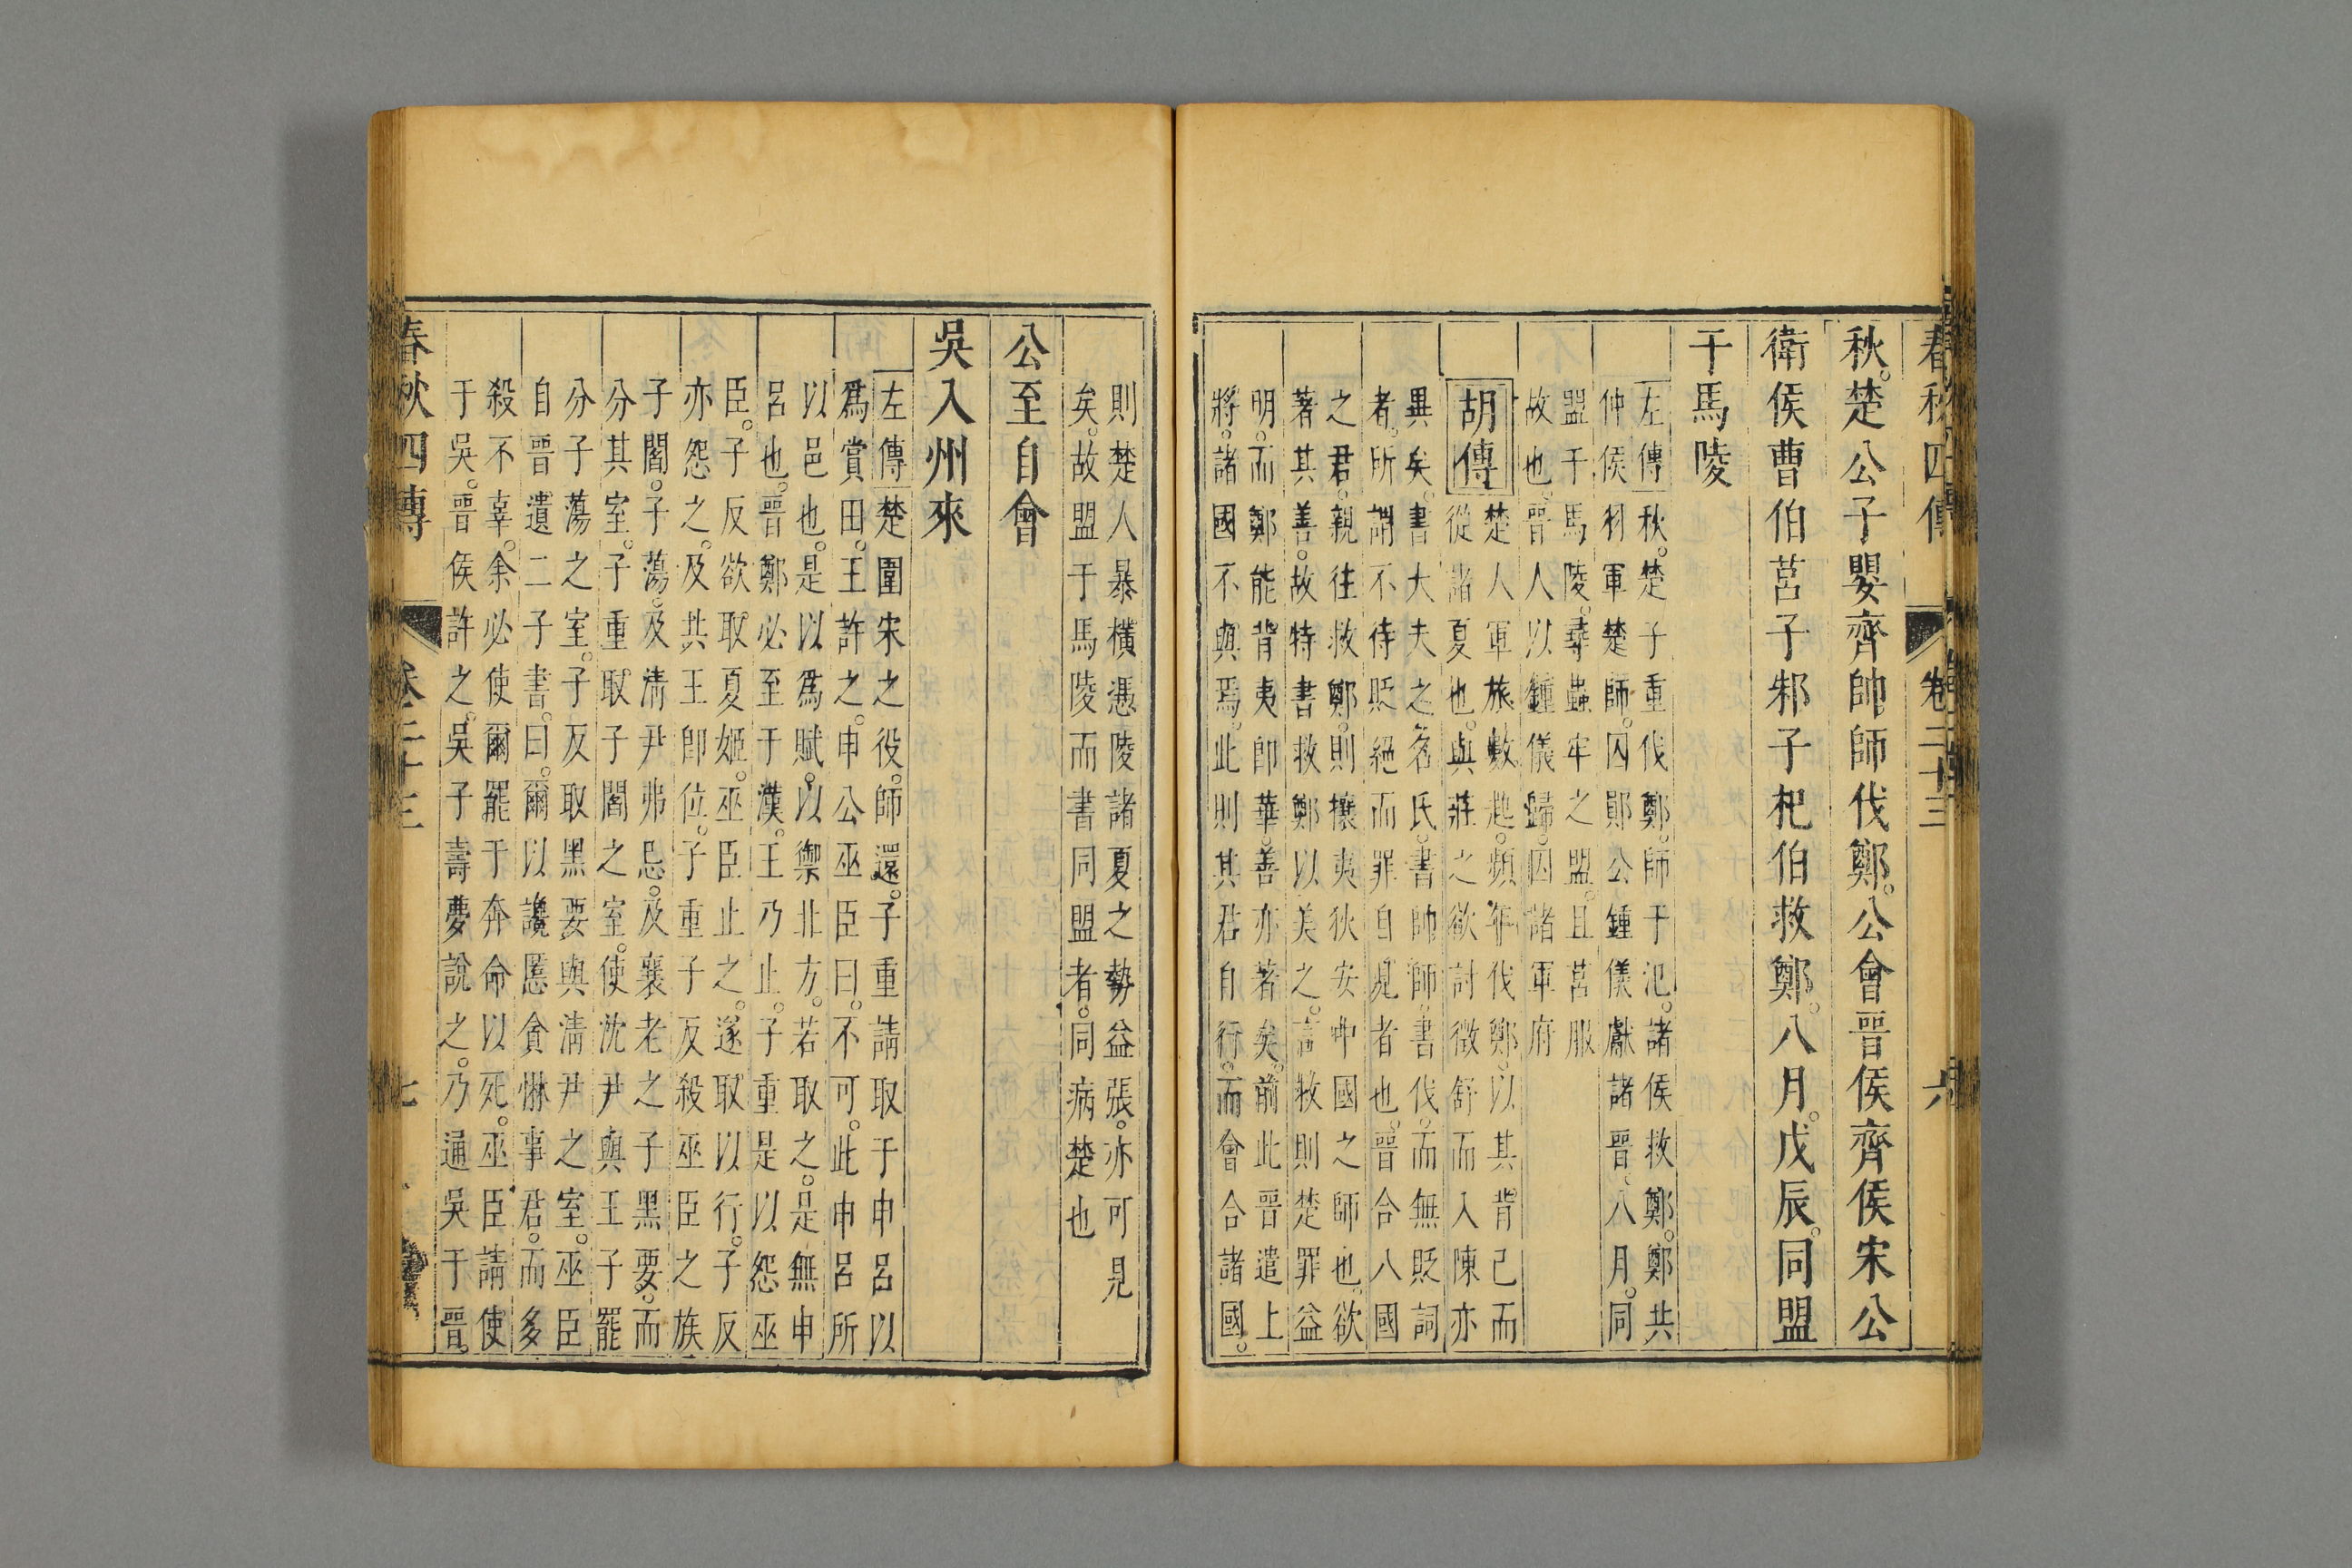 春秋四傳 卷二十三 六
秋。楚公子嬰齊帥師伐鄭。公會晉侯齊侯宋公
衛侯曹伯莒子邾子杞伯救鄭。八月。戊辰。同盟
于馬陵
左傳秋。楚子重伐鄭。師于氾。諸侯救鄭。鄭共
仲侯羽軍楚師。囚鄖公鍾儀獻諸晉。八月。同
盟于馬陵。尋蟲牢之盟。且莒服
故也。晉人以鍾儀歸。囚諸軍府
胡傳楚人軍旅數起。頻年伐鄭。以其背己而
從諸夏也。與莊之欲討徵舒而入陳亦
異矣。書大夫之名氏。書帥師。書伐。而無貶詞
者。所謂不待貶絕而罪自見者也。晉合八國
之君。親往救鄭。則攘夷狄安中國之師也。欲
著其善。故特書救鄭以美之。言救則楚罪益
明。而鄭能背夷即華。善亦著矣。前此晉遣上
將。諸國不與焉。此則其君自行。而會合諸國。
則楚人暴橫憑陵諸夏之勢益張。亦可見
矣。故盟于馬陵而書同盟者。同病楚也
公至自會
吳入州來
左傳楚圍宋之役。師還。子重請取于申呂以
爲賞田。王許之。申公巫臣曰。不可。此申呂所
以邑也。是以爲賦。以禦北方。若取之。是無申
呂也。晉鄭必至于漢。王乃止。子重是以怨巫
臣。子反欲取夏姬。巫臣止之。遂取以行。子反
亦怨之。及共王即位。子重子反殺巫臣之族
子閻。子蕩。及清尹弗忌。及襄老之子黑要。而
分其室。子重取子閻之室。使沈尹與王子罷
分子蕩之室。子反取黑要與清尹之室。巫臣
自晉遺二子書。曰。爾以讒慝貪惏事君。而多
殺不辜。余必使爾罷于奔命以死。巫臣請使
于吳。晉侯許之。吳子壽夢說之。乃通吳于晉。
春秋四傳 卷二十三 七